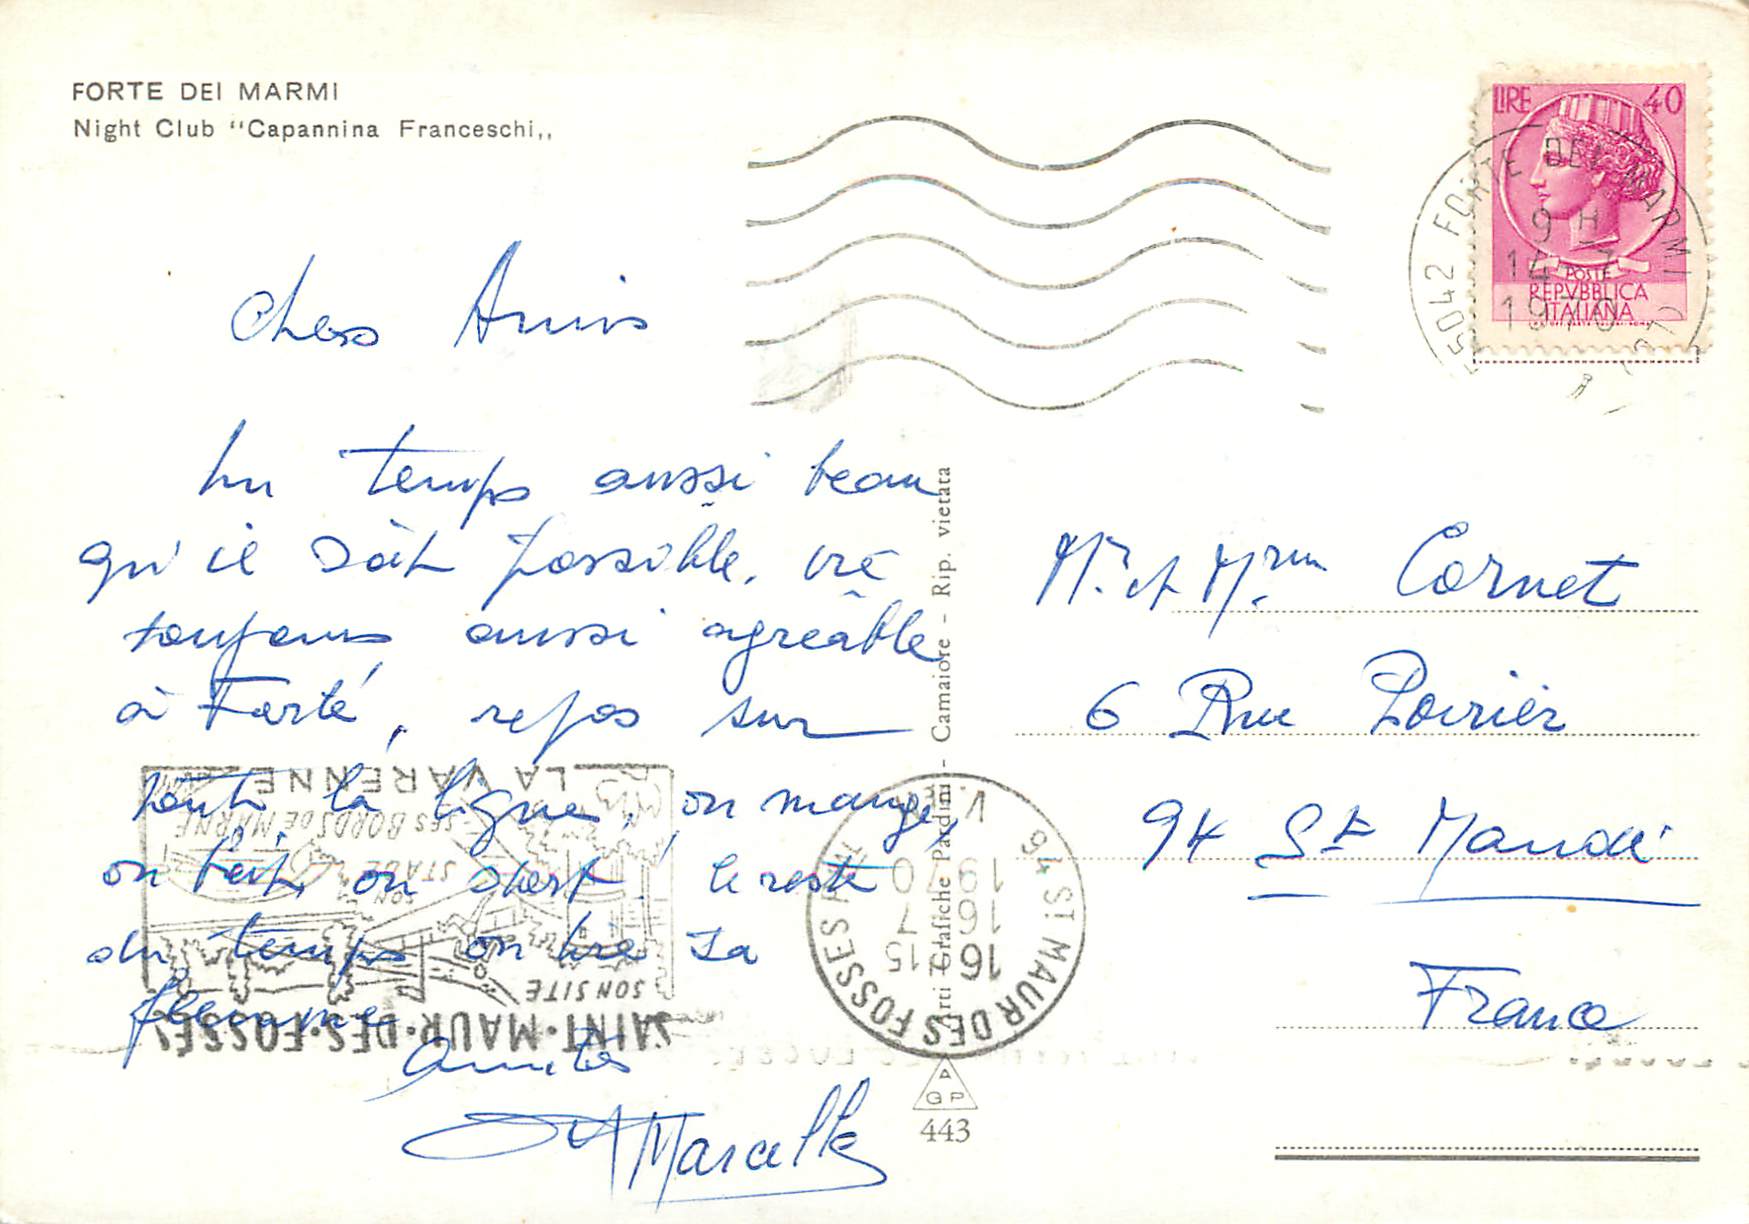 FORTE DEI MARMI
Night Club "Capannina Franceschi,,
LIRE 40
POSTE
REPVBBLICA
ITALIANA
55042 FORTE DEI MARMI
9 H
14 7
1970
Chers Amis
Un temps aussi beau
qu'il soit possible, vie
toujours aussi agréable
à Forté, repos sur
toute la ligne, on mange,
on boit on dort, le reste
du temps on tire sa
flemme
Amitiés
Marcelle
Mr. et Mme Cornet
6 Rue Poirier
94 St Mandé
France
Arti Grafiche Pardini - Camaiore - Rip. vietata
A
G P
443
94 ST MAUR DES FOSSES
16 15
16 7
1970
SAINT·MAUR·DES·FOSSÉS
SON SITE
SON STADE
SES BORDS DE MARNE
LA VARENNE